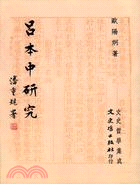 歐陽炯著
呂本中研究
潘重規署
文史哲學集成
文史哲出版社印行